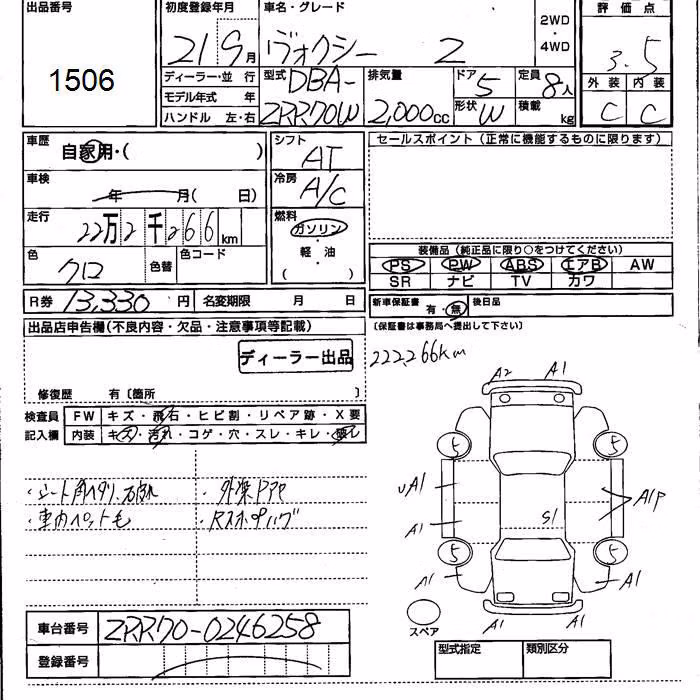 出品番号 初度登録年月 車名・グレード 評価点
1506 21 9月 ヴォクシー Z 2WD・4WD 3.5
ディーラー・並行 型式 DBA- 排気量 ドア 5 定員 8人 外装 内装
モデル年式 年 ZRR70W 2,000cc 形状 W 積載 kg C C
ハンドル 左・右
車歴 自家用・( ) シフト AT セールスポイント(正常に機能するものに限ります)
車検 年 月( 日) 冷房 A/C
走行 22万2千266km 燃料 ガソリン・軽・油 ( )
色 クロ 色替 色コード 装備品(純正品に限り○をつけてください)
PS PW ABS エアB AW
SR ナビ TV カワ
R券 13,330円 名変期限 月 日 新車保証書 有・無 後日品
出品店申告欄(不良内容・欠品・注意事項等記載) (保証書は事務局へ提出して下さい)
ディーラー出品 222,266km
修復歴 有〔箇所 〕
検査員記入欄 FW キズ・飛石・ヒビ割・リペア跡・X要
内装 キズ・汚れ・コゲ・穴・スレ・キレ・破レ
A2 A1
5 5
・シート ・外装ドアヤ
UA1 A1P
・車内ペット毛
A1 S1
5 5
A1 A1
スペア
A1 A1
車台番号 ZRR70-0246258
登録番号
型式指定 類別区分